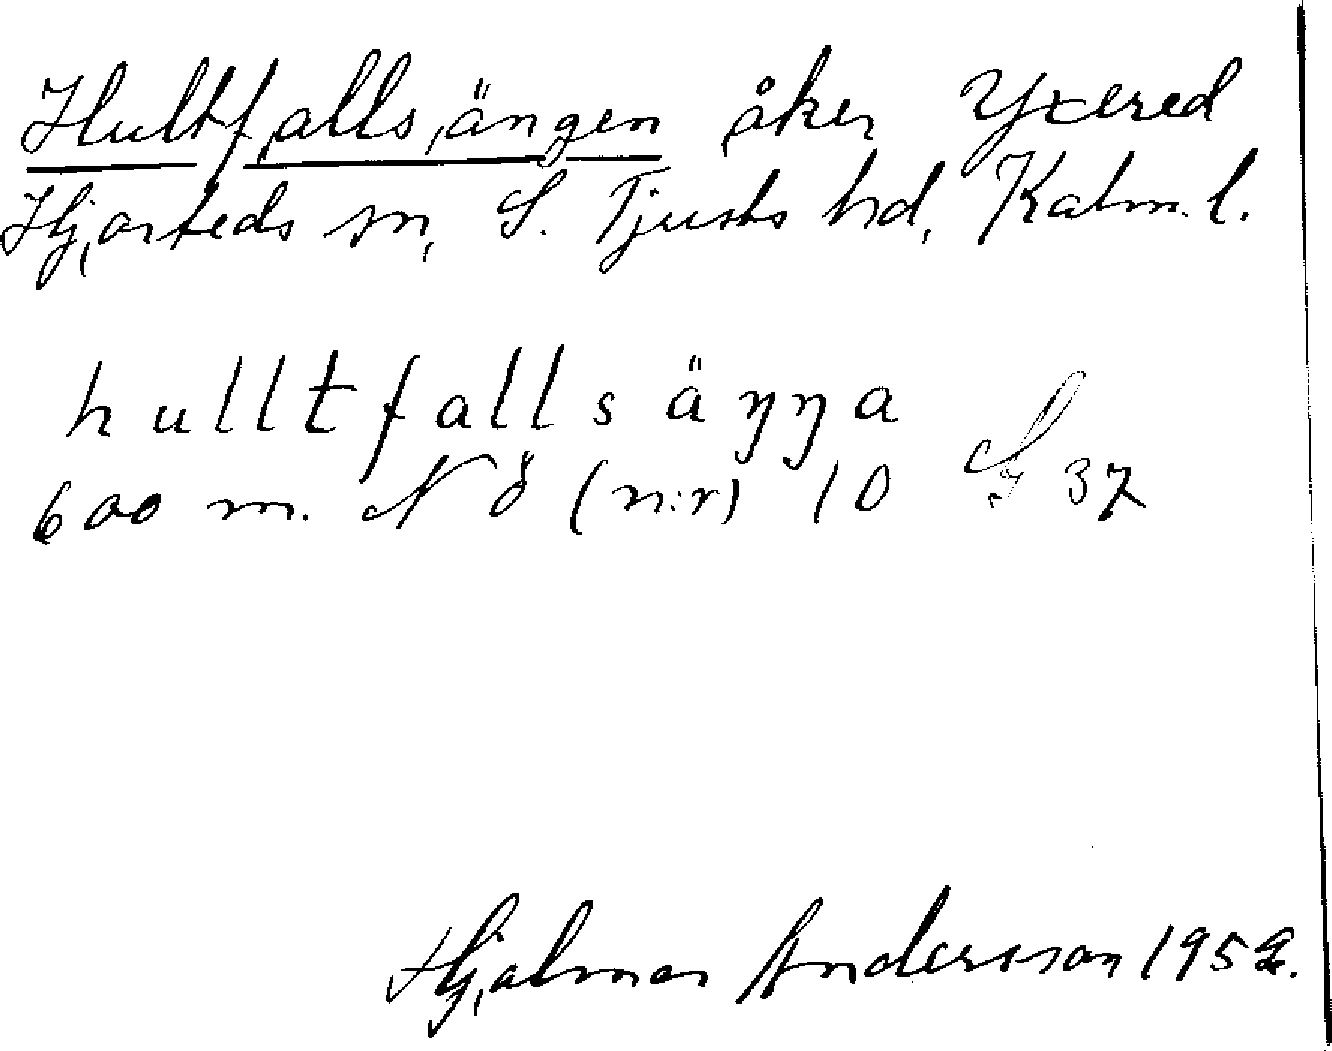 Hultfallsängen åker Yxered
Hjorteds sn, S. Tjusts hd, Kalm. l.
hulltfallsäŋŋa
600 m. N Ö (n:r) 10 37
Hjalmar Andersson 1952.